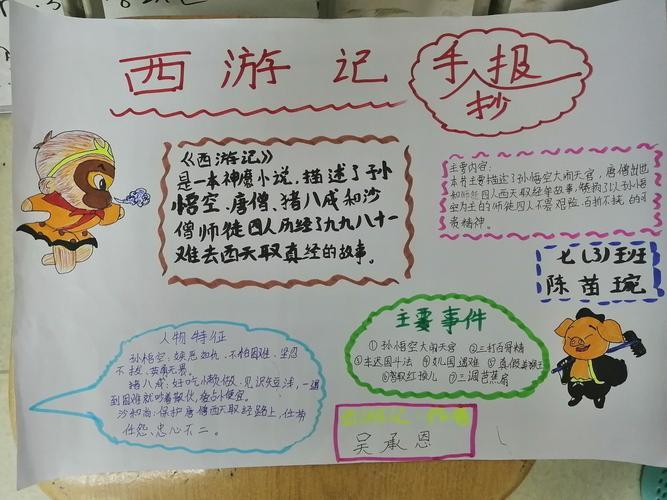 西游记
手抄报
《西游记》
是一本神魔小说，描述了孙
悟空、唐僧、猪八戒和沙
僧师徒四人历经了九九八十一
难去西天取真经的故事。
主要内容:
本书主要描述了孙悟空大闹天宫，唐僧出世
和师徒四人西天取经等故事，
空为主的师徒四人不畏艰险、百折不挠的可
贵精神。
七(3)班
陈苗琬
人物特征
孙悟空:嫉恶如仇、不怕困难、坚忍
不拔、
猪八戒:好吃懒做、见识短浅，一遇
到困难就吵着散伙，爱占小便宜。
沙和尚:保护唐僧西天取经路上，任劳
任怨、忠心不二。
主要事件
①孙悟空大闹天宫 ②三打白骨精
③车迟国斗法 ④女儿国遇难 ⑤真假美猴王
⑥智取红孩儿 ⑦三调芭蕉扇
西游记 作者
吴承恩